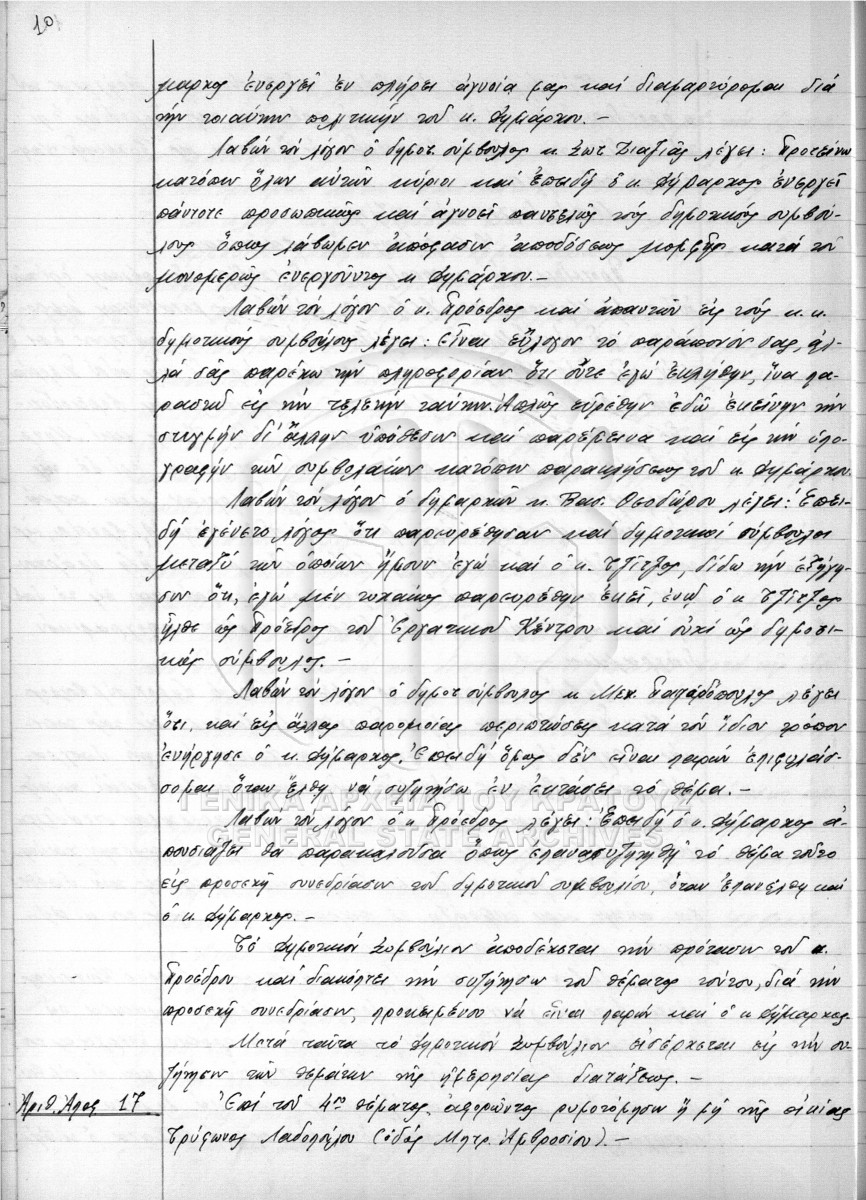 10
μαρχος ἐνεργεῖ ἐν πλήρει ἀγνοίᾳ μας καί διαμαρτύρομαι διά
τήν τοιαύτην πολιτικήν τοῦ κ. Δημάρχου. –
Λαβών τόν λόγον ὁ δημοτ. σύμβουλος κ. Σωτ. λέγει: Προτείνω
κατόπιν ὅλων αὐτῶν κύριοι καί ἐπειδή ὁ κ. Δήμαρχος ἐνεργεῖ
πάντοτε προσωπικῶς καί ἀγνοεῖ παντελῶς τούς δημοτικούς συμβού-
λους ὅπως λάβωμεν ἀπόφασιν ἀποδόσεως μομφῆς κατά τοῦ
μονομερῶς ἐνεργοῦντος κ. Δημάρχου. –
Λαβών τόν λόγον ὁ κ. Πρόεδρος καί ἀπαντῶν εἰς τούς κ.κ.
δημοτικούς συμβούλους λέγει: εἶναι εὔλογον τό παράπονόν σας, ἀλ-
λά σᾶς παρέχω τήν πληροφορίαν ὅτι οὔτε ἐγώ ἐκλήθην, ἵνα πα-
ραστῶ εἰς τήν τελετήν ταύτην. Ἁπλῶς εὑρέθην ἐδῶ ἐκείνην τήν
στιγμήν δι' ἄλλην ὑπόθεσιν καί παρέμεινα καί εἰς τήν ὑπο-
γραφήν τῶν συμβολαίων κατόπιν παρακλήσεως τοῦ κ. Δημάρχου.
Λαβών τόν λόγον ὁ δημαρχῶν κ. Βασ. Θεοδώρου λέγει: Ἐπει-
δή ἐγένετο λόγος ὅτι παρευρέθησαν καί δημοτικοί σύμβουλοι
μεταξύ τῶν ὁποίων ἤμουν ἐγώ καί ὁ κ. Τζίτζος, δίδω τήν ἐξήγη-
σιν ὅτι, ἐγώ μέν τυχαίως παρευρέθην ἐκεῖ, ἐνῶ ὁ κ. Τζίτζος
ἦλθε ὡς Πρόεδρος τοῦ Ἐργατικοῦ Κέντρου καί οὐχί ὡς δημοτι-
κός σύμβουλος. –
Λαβών τόν λόγον ὁ δημοτ. σύμβουλος κ. λέγει
ὅτι, καί εἰς ἄλλας παρομοίας περιπτώσεις κατά τόν ἴδιον τρόπον
ἐνήργησε ὁ κ. Δήμαρχος. Ἐπειδή ὅμως δέν εἶναι παρών ἐπιφυλάσ-
σομαι ὅταν ἔλθῃ νά συζητήσω ἐν ἐκτάσει τό θέμα. –
ΓΕΝΙΚΑ ΑΡΧΕΙΑ ΤΟΥ ΚΡΑΤΟΥΣ
GENERAL STATE ARCHIVES
Λαβών τόν λόγον ὁ κ. Πρόεδρος λέγει: Ἐπειδή ὁ κ. Δήμαρχος ἀ-
πουσιάζει θά παρακαλοῦσα ὅπως ἐπανασυζητηθῇ τό θέμα τοῦτο
εἰς προσεχῆ συνεδρίασιν τοῦ δημοτικοῦ συμβουλίου, ὅταν ἐπανέλθῃ καί
ὁ κ. Δήμαρχος. –
Τό Δημοτικόν Συμβούλιον ἀποδέχεται τήν πρότασιν τοῦ κ.
Προέδρου καί διακόπτει τήν συζήτησιν τοῦ θέματος τούτου, διά τήν
προσεχῆ συνεδρίασιν, προκειμένου νά εἶναι παρών καί ὁ κ. Δήμαρχος
Μετά ταῦτα τό Δημοτικόν Συμβούλιον εἰσέρχεται εἰς τήν συ-
ζήτησιν τῶν θεμάτων τῆς ἡμερησίας διατάξεως. –
Ἀριθ. Ἀποφ. 17
Ἐπί τοῦ 4ου θέματος, ἀφορῶντος ρυμοτόμησιν ἤ μή τῆς οἰκίας
Τρύφωνος Λαδοπούλου (ὁδός Μητρ. Ἀμβροσίου). –